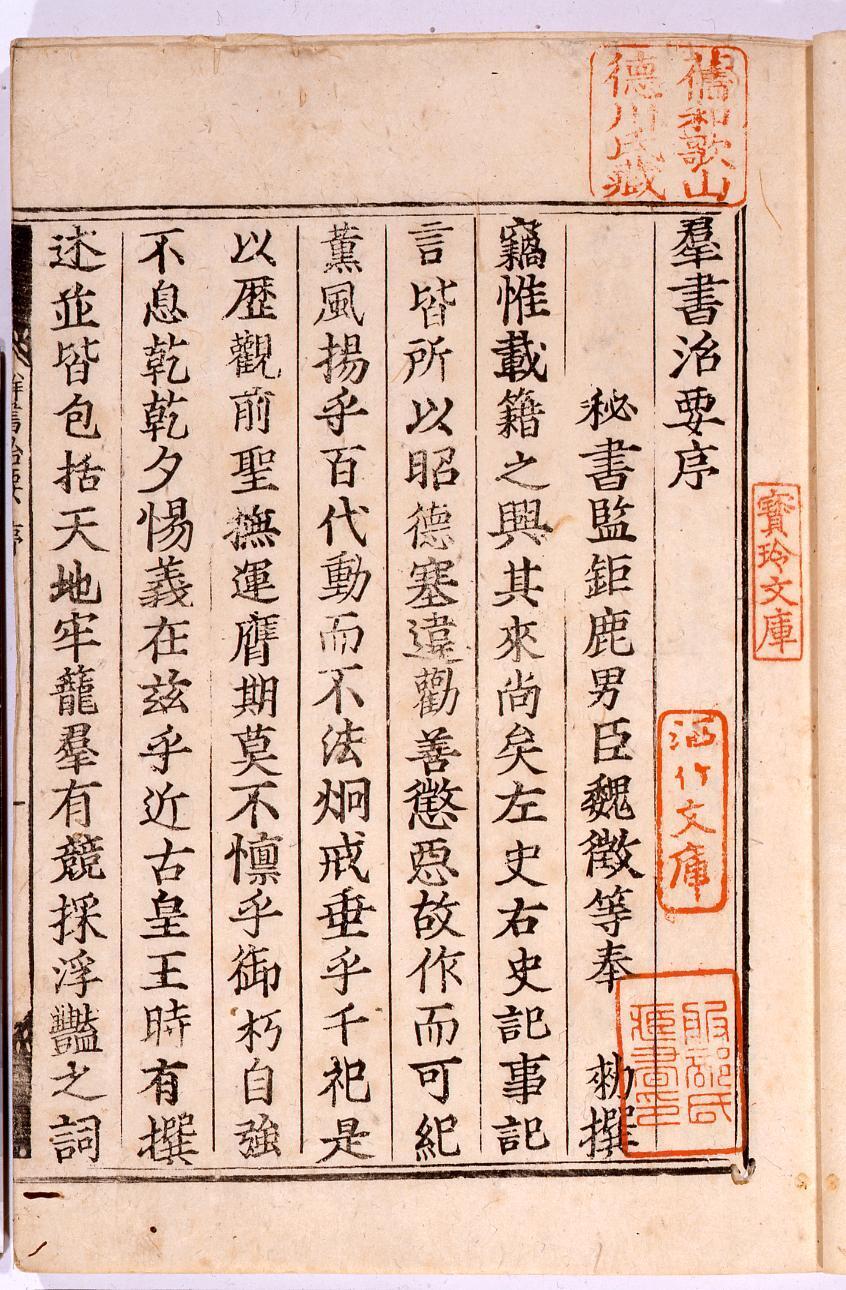 羣書治要序
秘書監鉅鹿男臣魏徵等奉　勑撰
竊惟載籍之興其來尚矣左史右史記事記
言皆所以昭德塞違勸善懲惡故作而可紀
薰風揚乎百代動而不法炯戒垂乎千祀是
以歷觀前聖撫運膺期莫不懍乎御朽自強
不息乾乾夕惕義在茲乎近古皇王時有撰
述並皆包括天地牢籠羣有競採浮豔之詞
舊和歌山
德川氏藏
寶玲文庫
文庫
服部氏